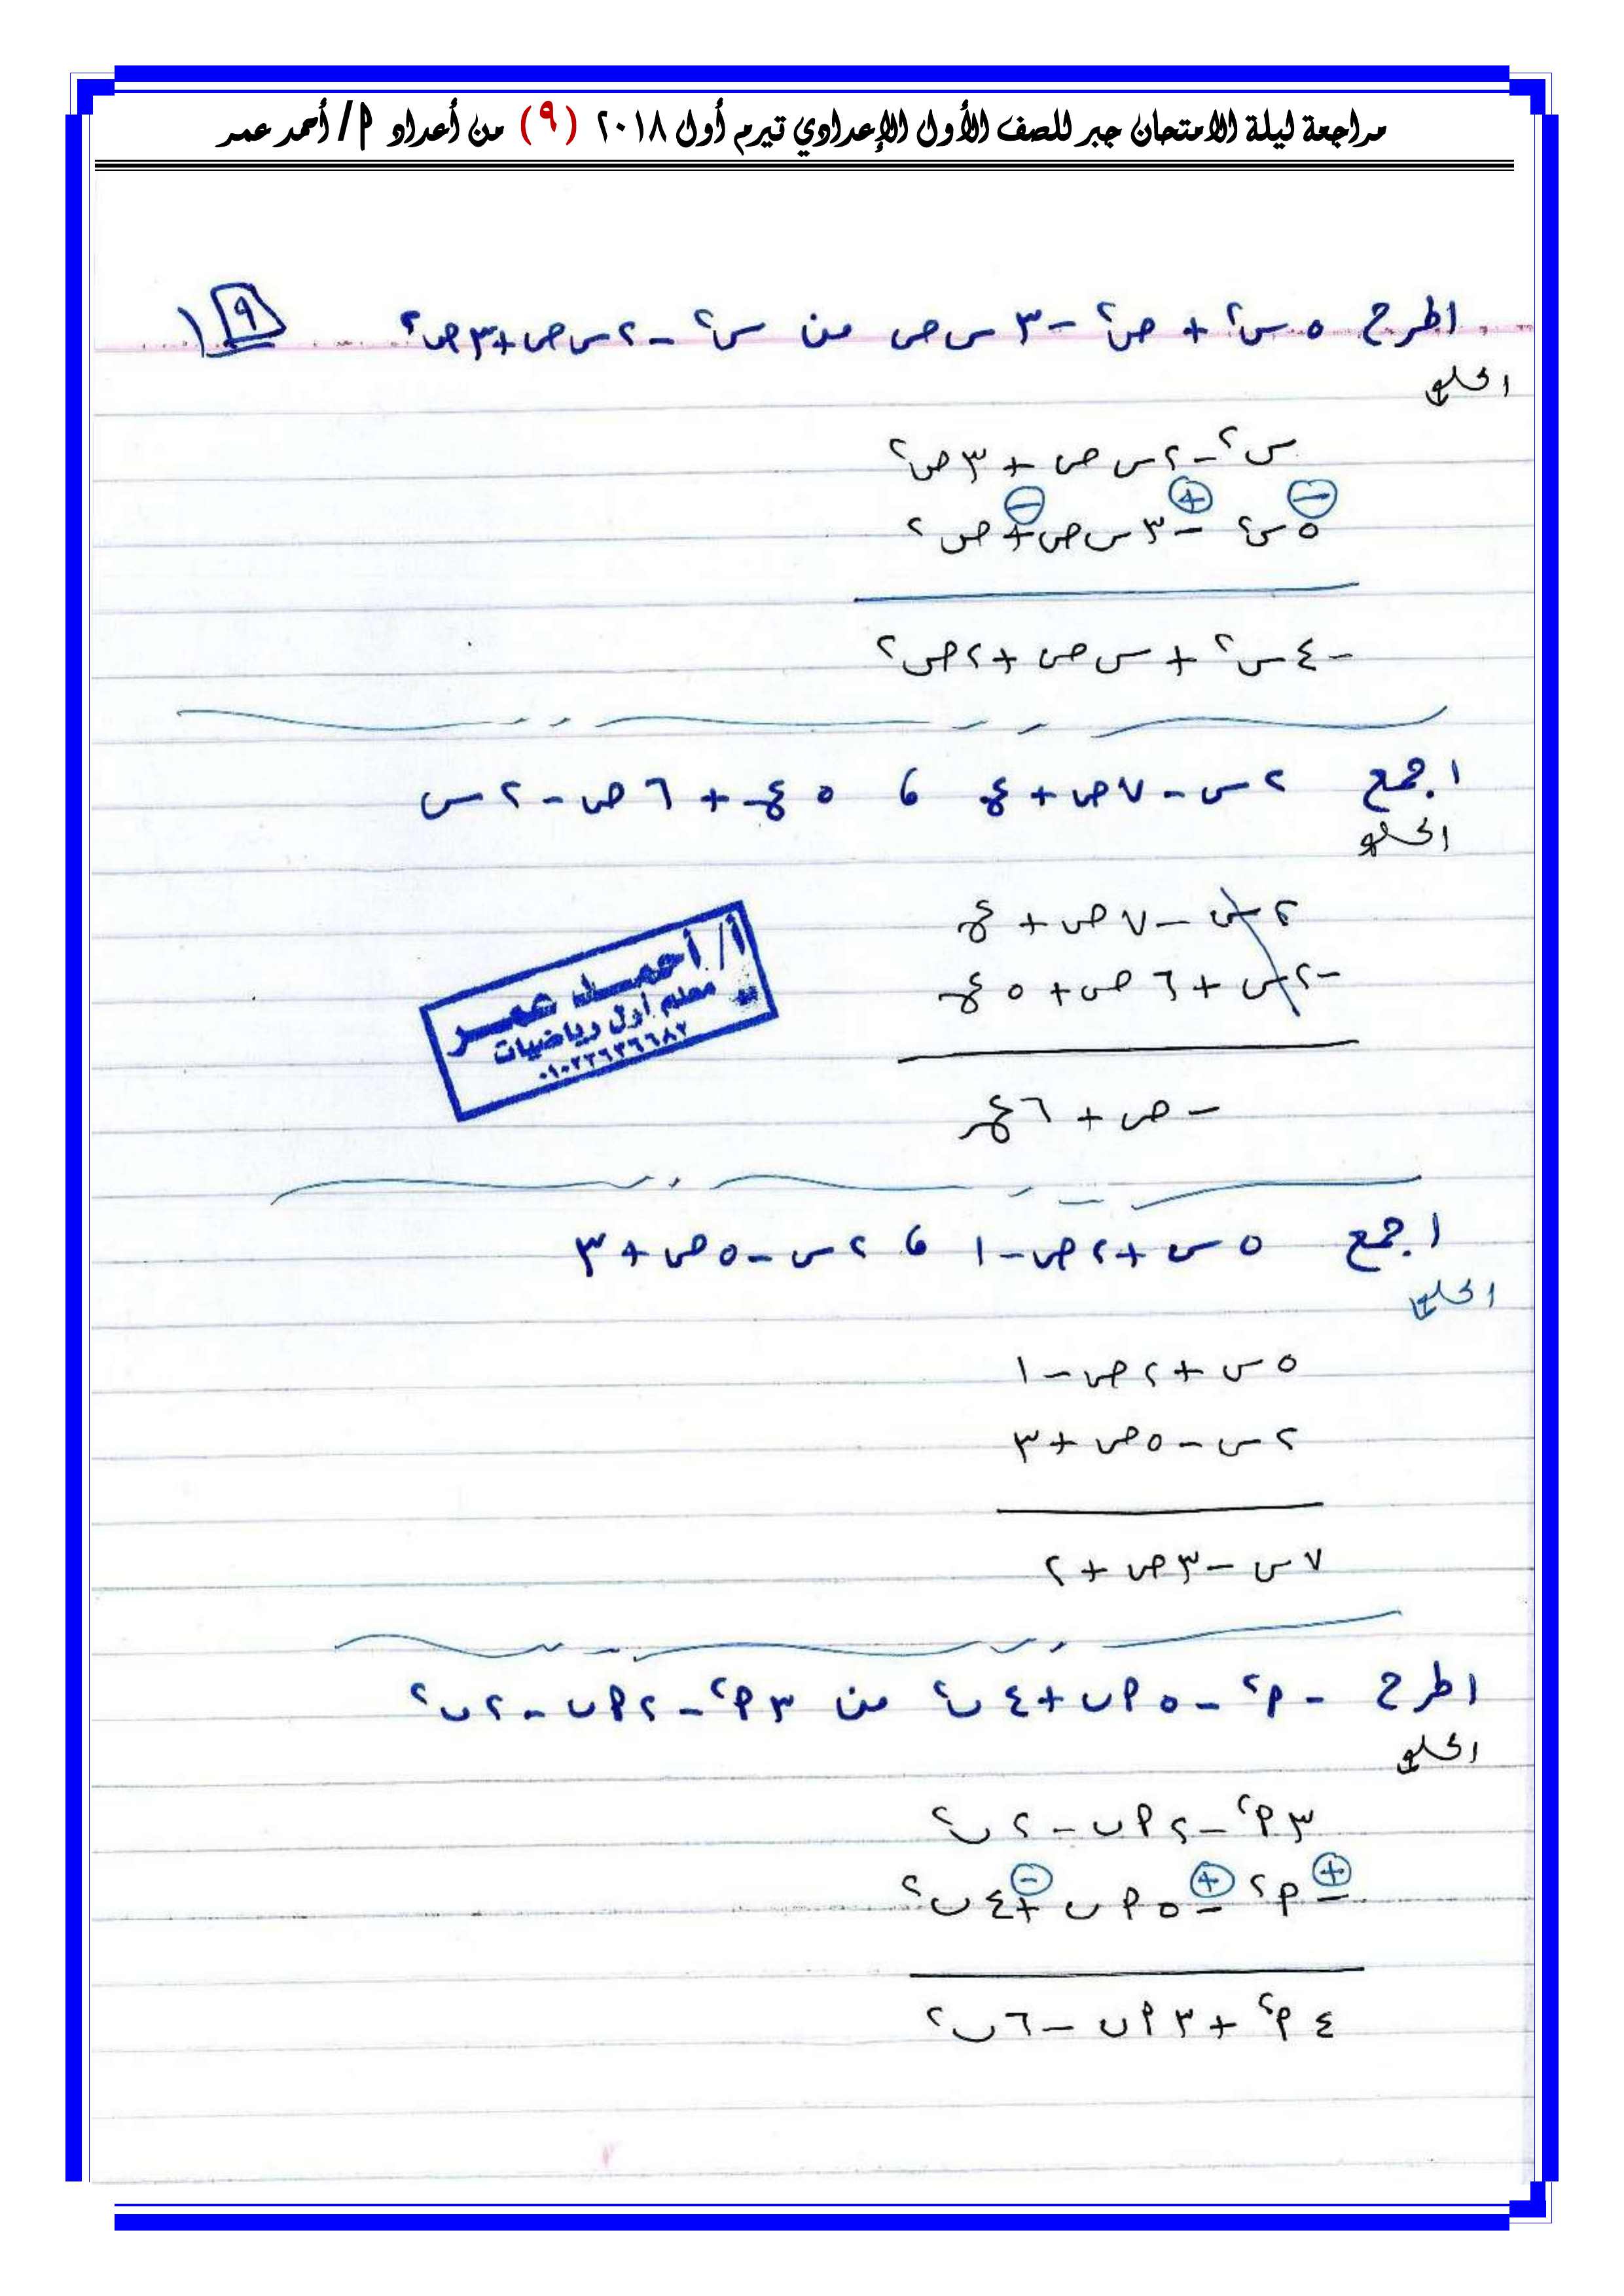 مراجعة ليلة الامتحان جبر للصف الأول الإعدادي تيرم أول ٢٠١٨ (٩) من أعداد أ/ أحمد عمر
٩
اطرح ٥س² + ص² - ٣س ص من س² - ٢س ص + ٣ص²
الحل
س² - ٢س ص + ٣ص²
⊖ ⊕ ⊖
٥س² - ٣س ص + ص²
-٤س² + س ص + ٢ص²
اجمع ٢س - ٧ص + ع ، ٥ع + ٦ص - ٢س
الحل
٢س - ٧ص + ع
-٢س + ٦ص + ٥ع
أ/ أحمد عمر
معلم أول رياضيات
- ص + ٦ع
اجمع ٥س + ٢ص - ١ ، ٢س - ٥ص + ٣
الحل
٥س + ٢ص - ١
٢س - ٥ص + ٣
٧س - ٣ص + ٢
اطرح -أ² - ٥أب + ٤ب² من ٣أ² - ٢أب - ٢ب²
الحل
٣أ² - ٢أب - ٢ب²
⊕ ⊕ ⊖
-أ² - ٥أب + ٤ب²
٤أ² + ٣أب - ٦ب²